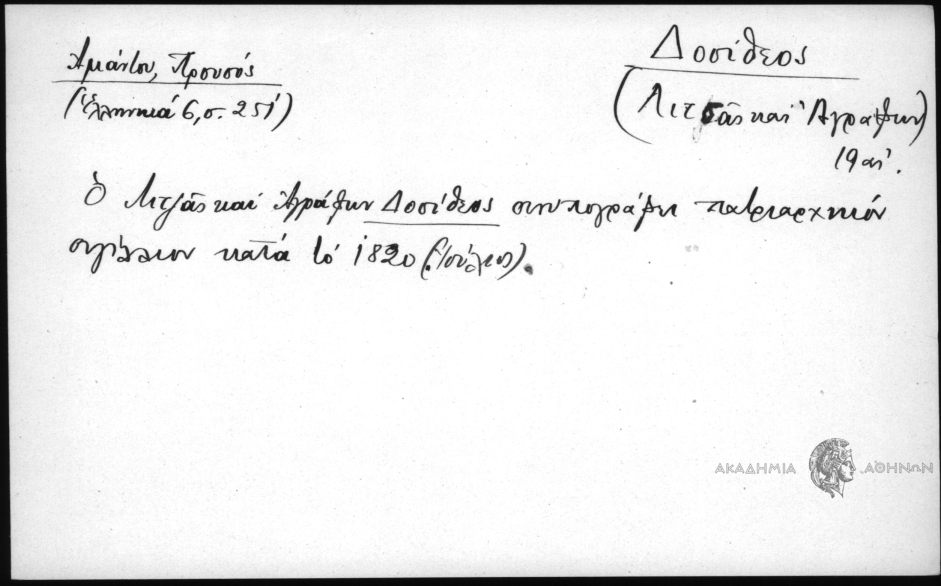 Ἀμάντου, Προυσός
(Ἑλληνικά 6, σ. 251)
Δοσίθεος
(Λιτσᾶς καί Ἀγράφων)
19 αἰ.
Ὁ Λιτζᾶς καί Ἀγράφων Δοσίθεος συνυπογράφει πατριαρχικόν
σιγίλλιον κατά τό 1820 (Ἰούλιος).
ΑΚΑΔΗΜΙΑ ΑΘΗΝΩΝ